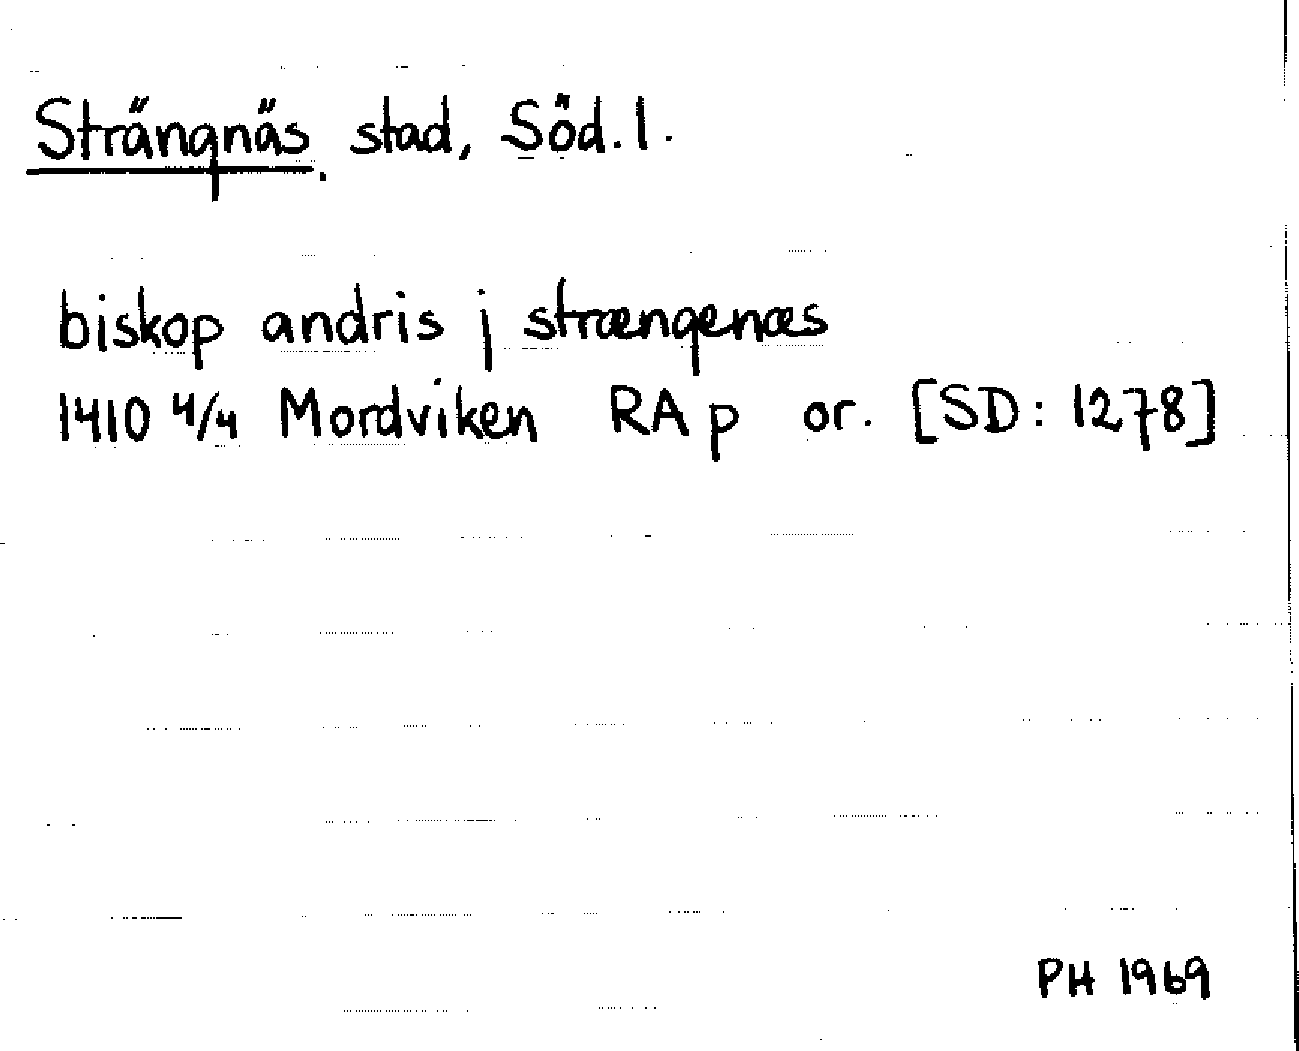 Strängnäs stad, Söd. l.
biskop andris j strængenæs
1410 4/4 Mordviken RA p or. [SD: 1278]
PH 1969